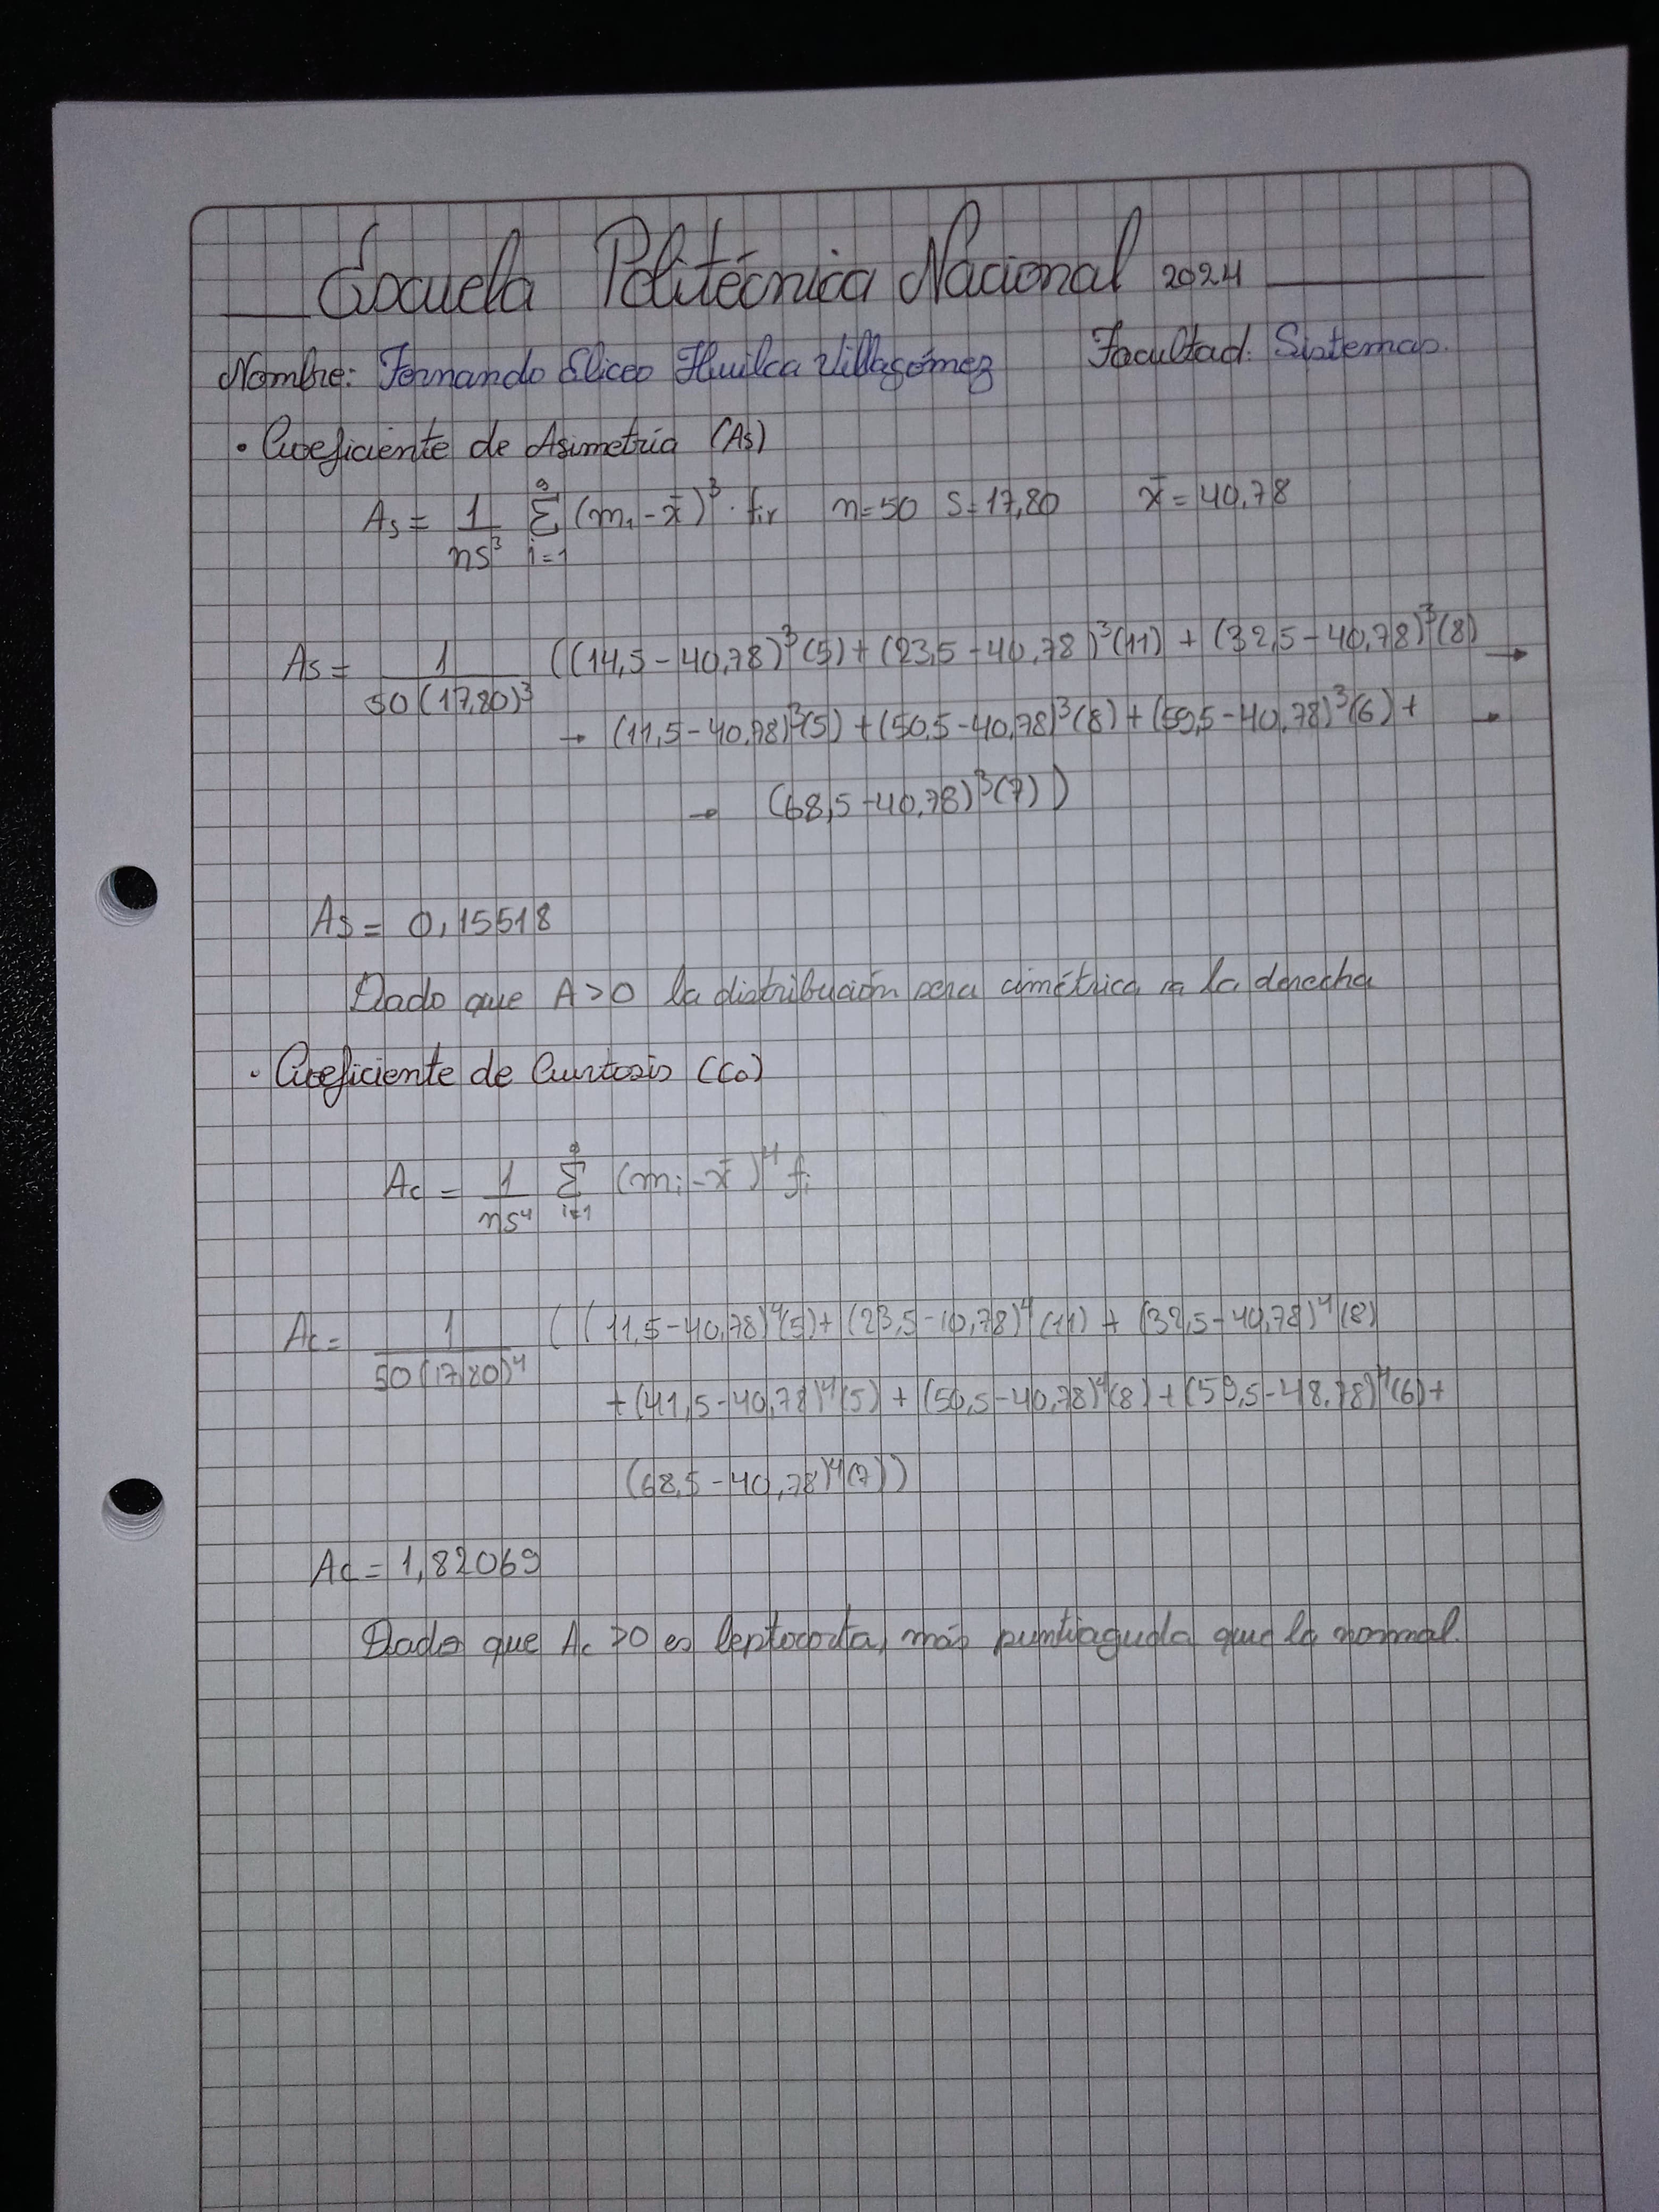 Escuela Politécnica Nacional 2024
Nombre: Fernando Eliceo Huilca Villagómez Facultad: Sistemas.
• Coeficiente de Asimetría (As)
As = 1/ns³ Σ_{i=1}^{g} (m₁ - x̄)³ · fᵢ n=50 S=17,80 x̄ = 40,78
As = 1/50(17,80)³ ((14,5-40,78)³(5)+(23,5-40,78)³(11) + (32,5-40,78)³(8) →
→ (11,5-40,78)³(5) + (50,5-40,78)³(8) + (59,5-40,78)³(6) + →
→ (68,5-40,78)³(7))
As = 0,15518
Dado que A>0 la distribución sera cimétrica a la derecha
• Coeficiente de Curtosis (Co)
Ac = 1/ns⁴ Σ_{i=1}^{g} (mᵢ - x̄)⁴ fᵢ
Ac = 1/50(17,80)⁴ ((11,5-40,78)⁴(5)+(23,5-10,78)⁴(11) + (32,5-40,78)⁴(8)
+(41,5-40,78)⁴(5) + (50,5-40,78)⁴(8) + (59,5-48,78)⁴(6)+
(68,5-40,78)⁴(7))
Ac = 1,82069
Dado que Ac >0 es leptocorta, más puntiaguda que la normal.